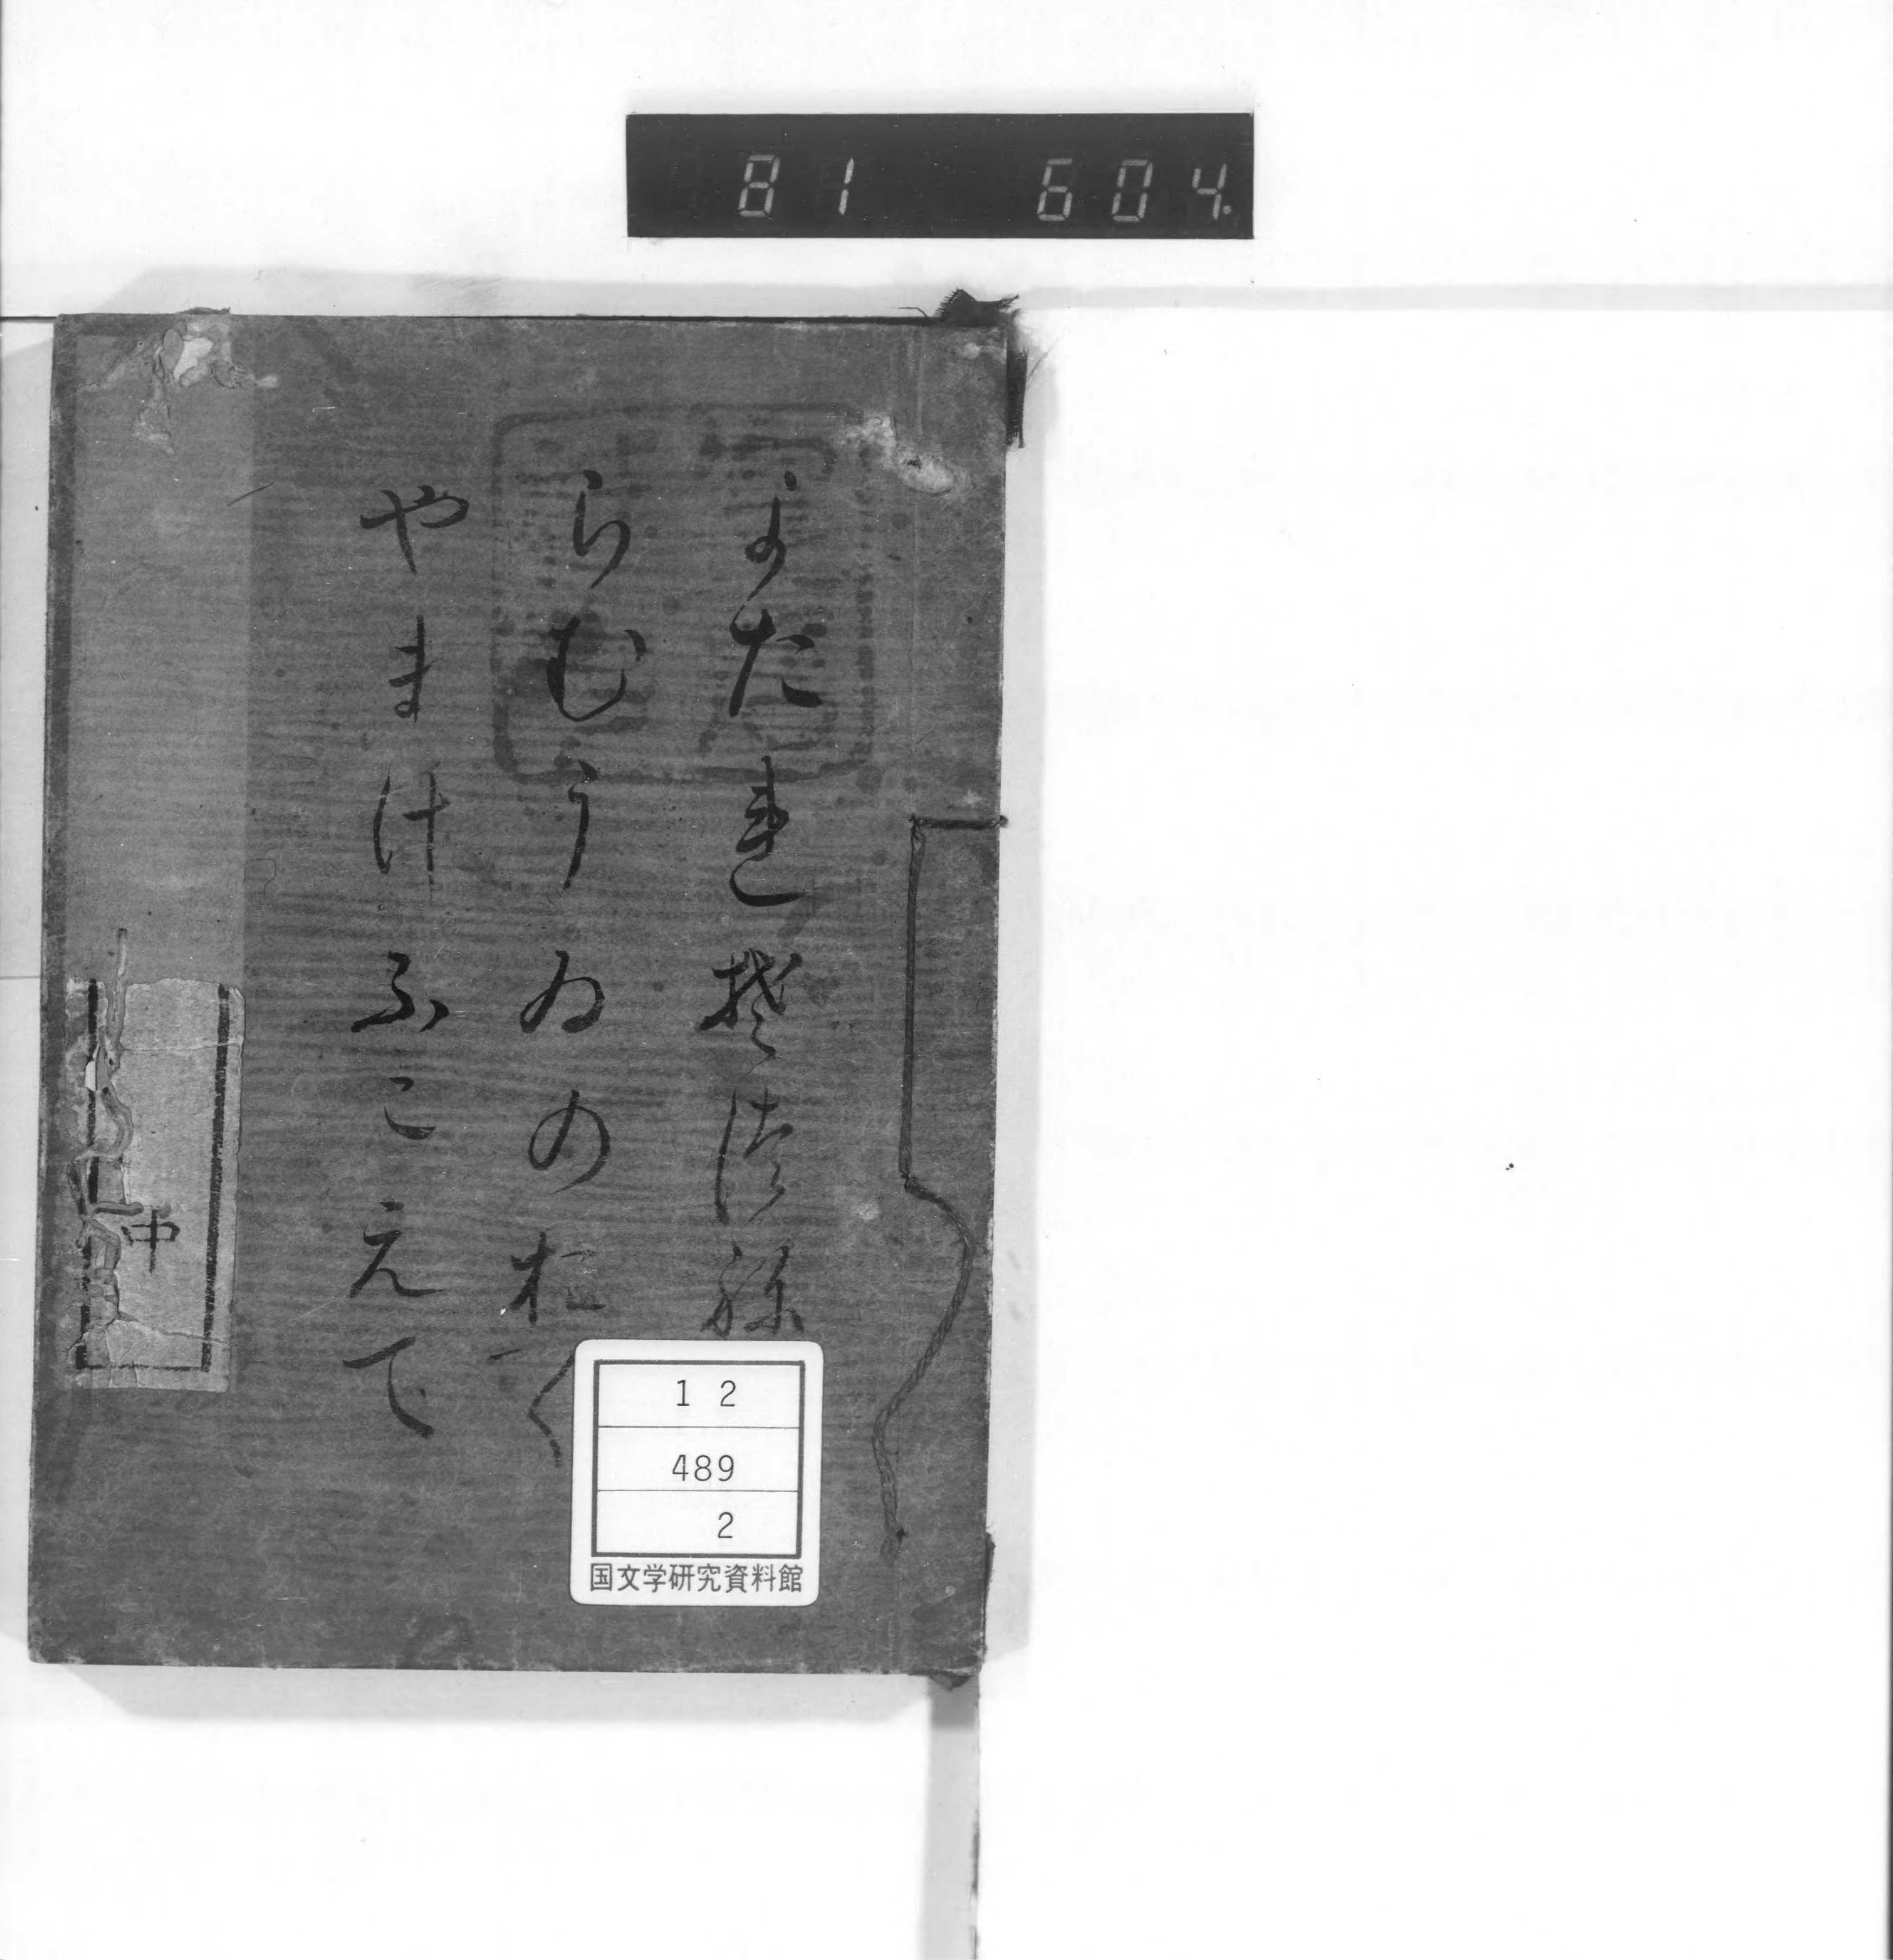 81 604.
よたれそつね
らむうゐのおく
やまけふこえて
中
12
489
2
国文学研究資料館